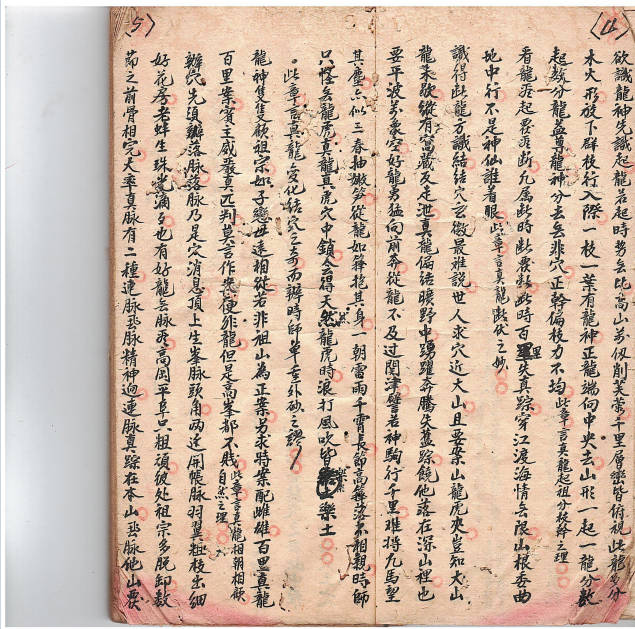 (4)
欲識龍神先識起龍若起時勢無比高山萬仞削芙蓉千里層巒皆俯視此龍多分
木火形放下群枝行入際一枝一葉有龍神正龍端向中央去山形一起一龍分數
起數分龍益尊龍神分去無非穴正幹偏枝力不均此章言真龍起祖分枝幹之理
看龍起要断此時此時百里失真踪穿江渡海情無限山根委曲
地中行不是神仙誰着眼此章言真龍断伏之妙
識得此龍方識結結穴玄微最難說世人求穴近大山且要案山龍虎夾豈知大山
龍未歇縱有窩藏反走泄真龍偏結曠野中踴躍奔騰失盖踪饒他落在深山裡也
要平波萬象空好龍勇猛向前奔從龍不及过関津譬若神駒行千里难將凡馬望
(5)
其塵亦似三春抽嫩笋從龍如籜抱其身一朝雷雨千霄長節高籜落不相親時師
只怪無龍虎真龍真虎穴中鎖会得天然真龍虎時浪打風吹皆樂土
此章言真龍変化結穴之奇而辦時師単重外砂之謬
龍神隻隻顧祖宗如子戀母遠相從若非祖山為正案另求時案配雌雄百里真龍
百里案賓主威嚴真匹判莫言作案便非龍但是高峯都不賎此章言真龍相朝相顧自然之理
辦龍先須辦落脉落脉乃是穴消息頂上生峯脉頭角两邊開帳脉羽翼粗枝出細
好花房老蚌生珠光滴滴也有好龍無脉高岡平阜只粗頑彼處祖宗多脱卸数
節之前骨相完大率真脉有二種連脉飛脉精神迥連脉真踪在本山飛脉他山要